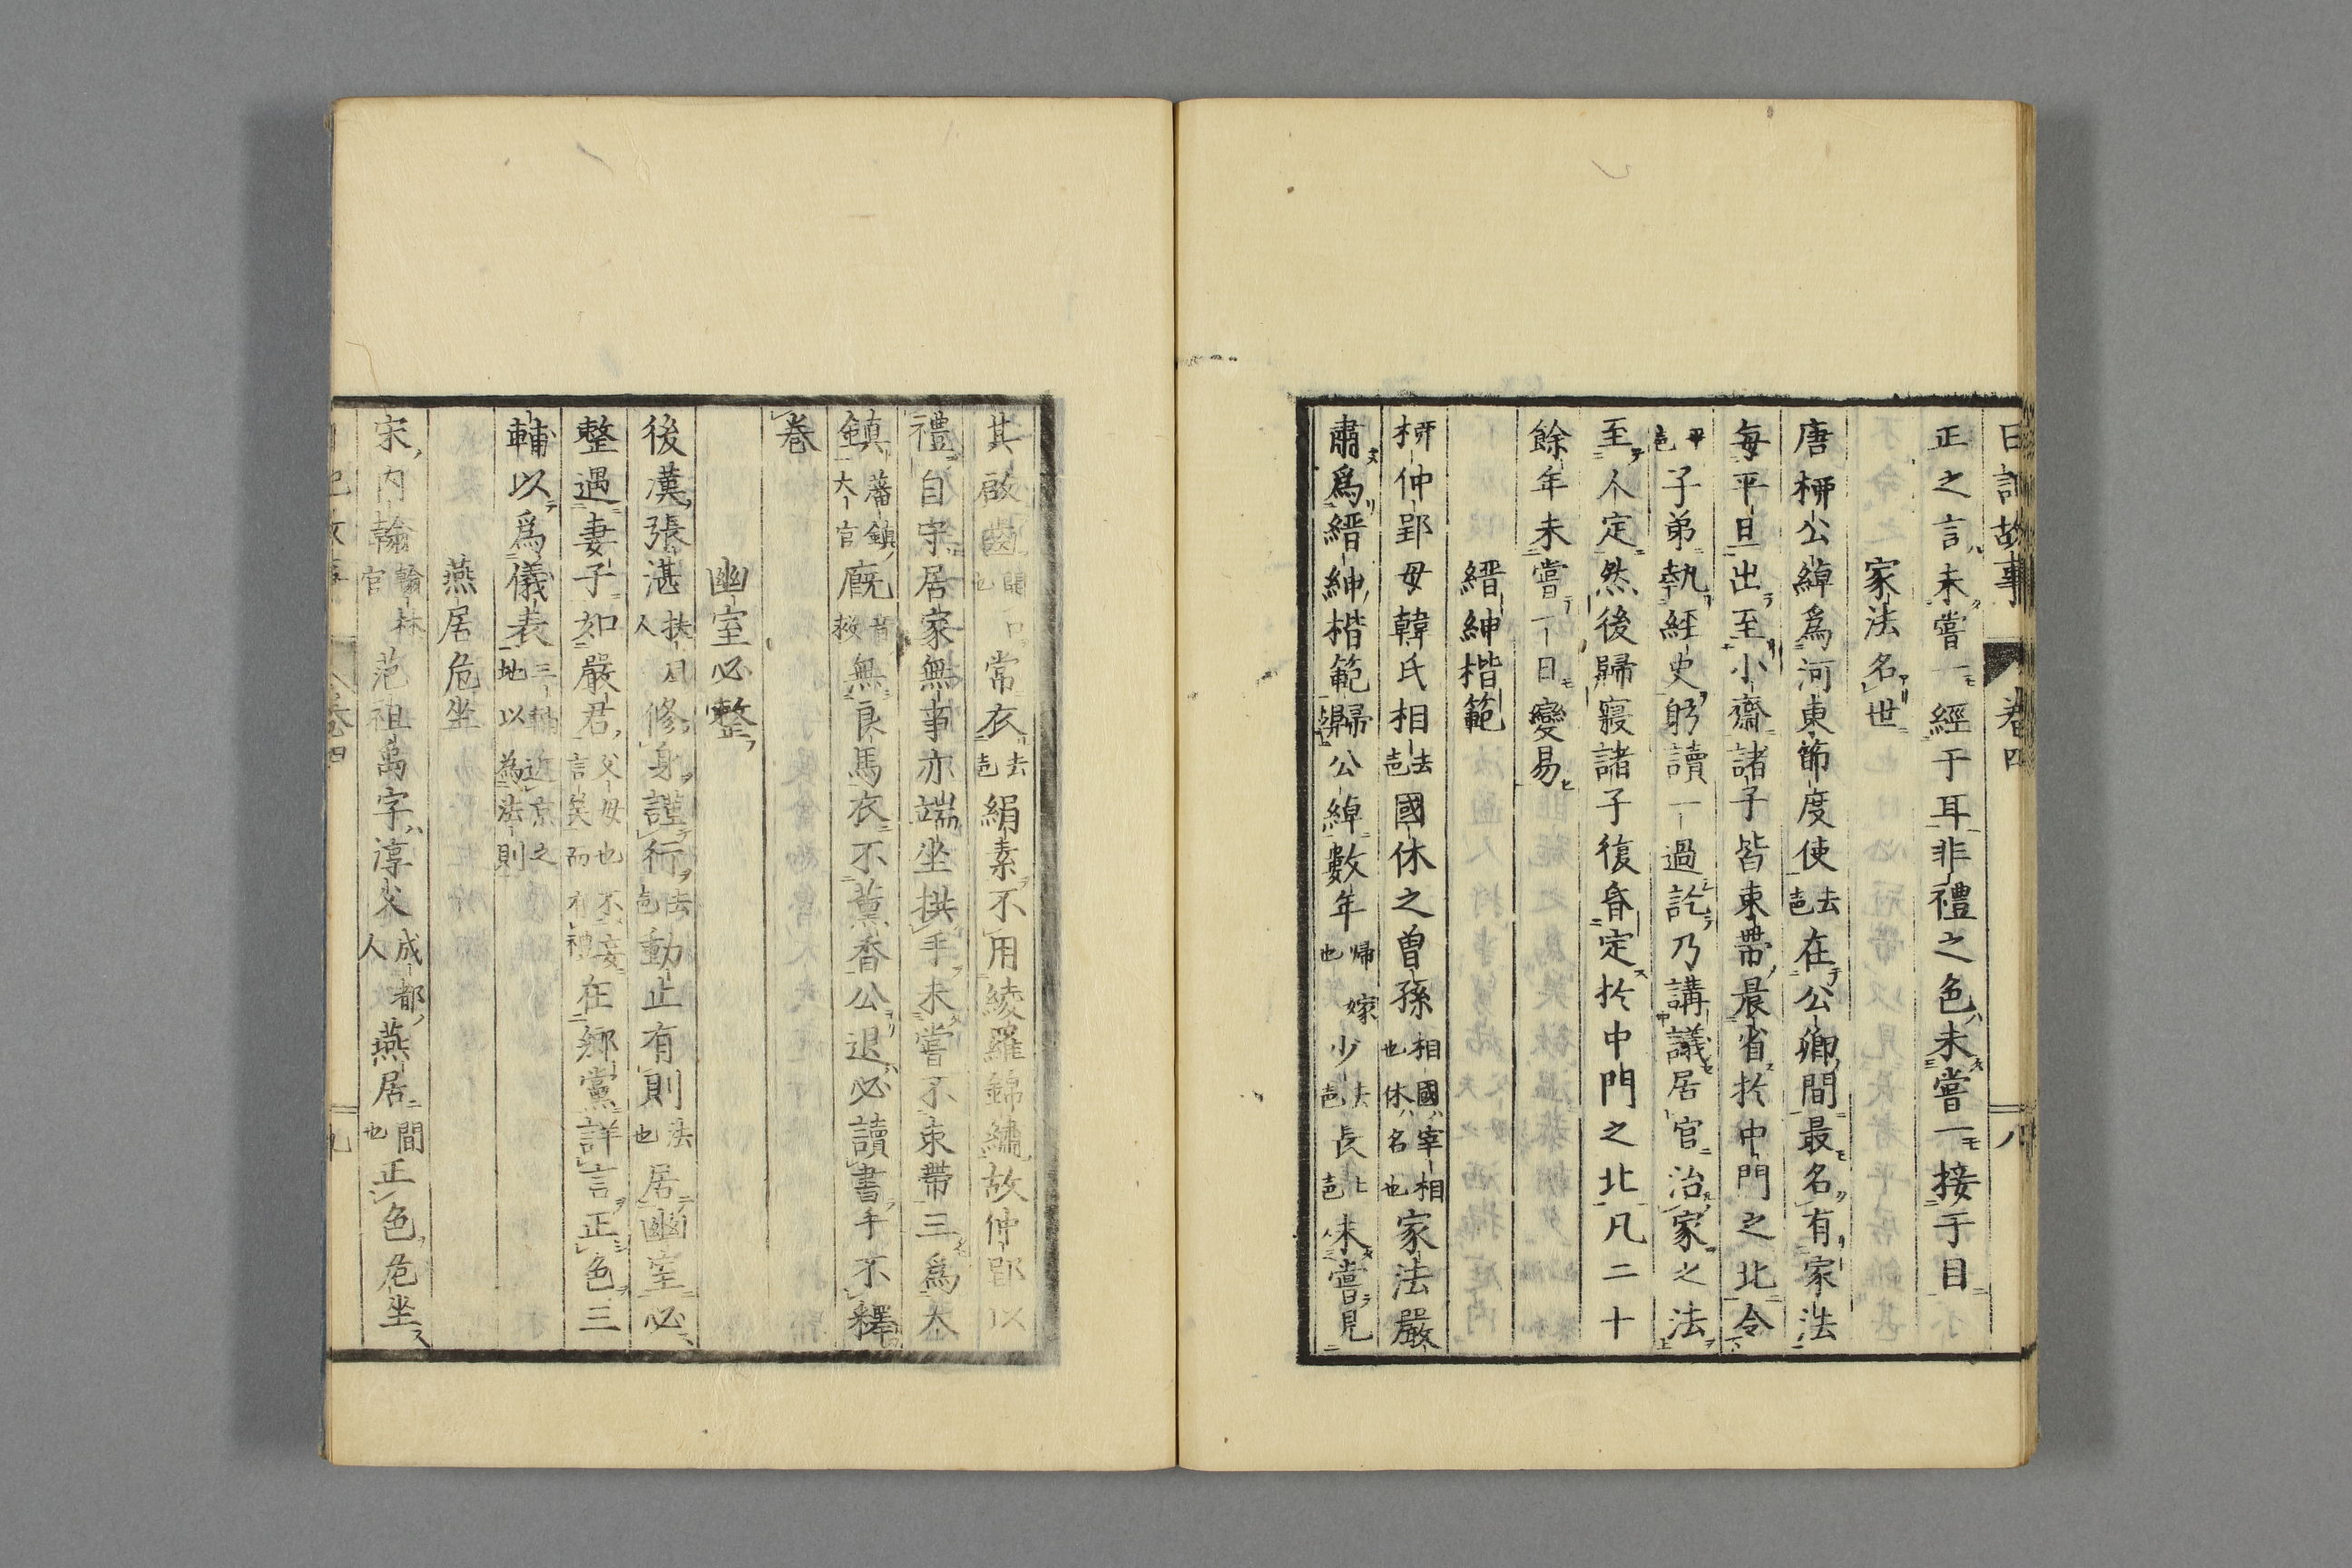 日記故事 卷四 八
正之言未嘗一經于耳非禮之色未嘗一接于目
家法名世
唐柳公綽爲河東節度使去声在公卿間最名有家法
每平旦出至小齋諸子皆束帶晨省於中門之北令
平声子弟執經史躬讀一過訖乃講議居官治家之法
至人定然後歸寢諸子復昏定於中門之北凡二十
餘年未嘗一日變易
縉紳楷範
柳仲郢母韓氏相去声國休之曾孫相國宰相也休名也家法嚴
肅爲縉紳楷範歸公綽數年歸嫁也少去声長上声未嘗見
其啟齒開口也常衣去声絹素不用綾羅錦繡故仲郢以
禮自守居家無事亦端坐拱手未嘗不束帶三爲大
鎮藩鎮大官廐音救無良馬衣不薰香公退必讀書手不釋
卷
幽室必整
後漢張湛扶風人修身謹行去声動止有則法也居幽室必
整遇妻子如嚴君父母也言矣而有禮在鄉黨詳言正色三
輔以爲儀表三輔近京之地以為法則
燕居危坐
宋内翰翰林官范祖禹字淳父成都人燕居間也正色危坐
卷四 九